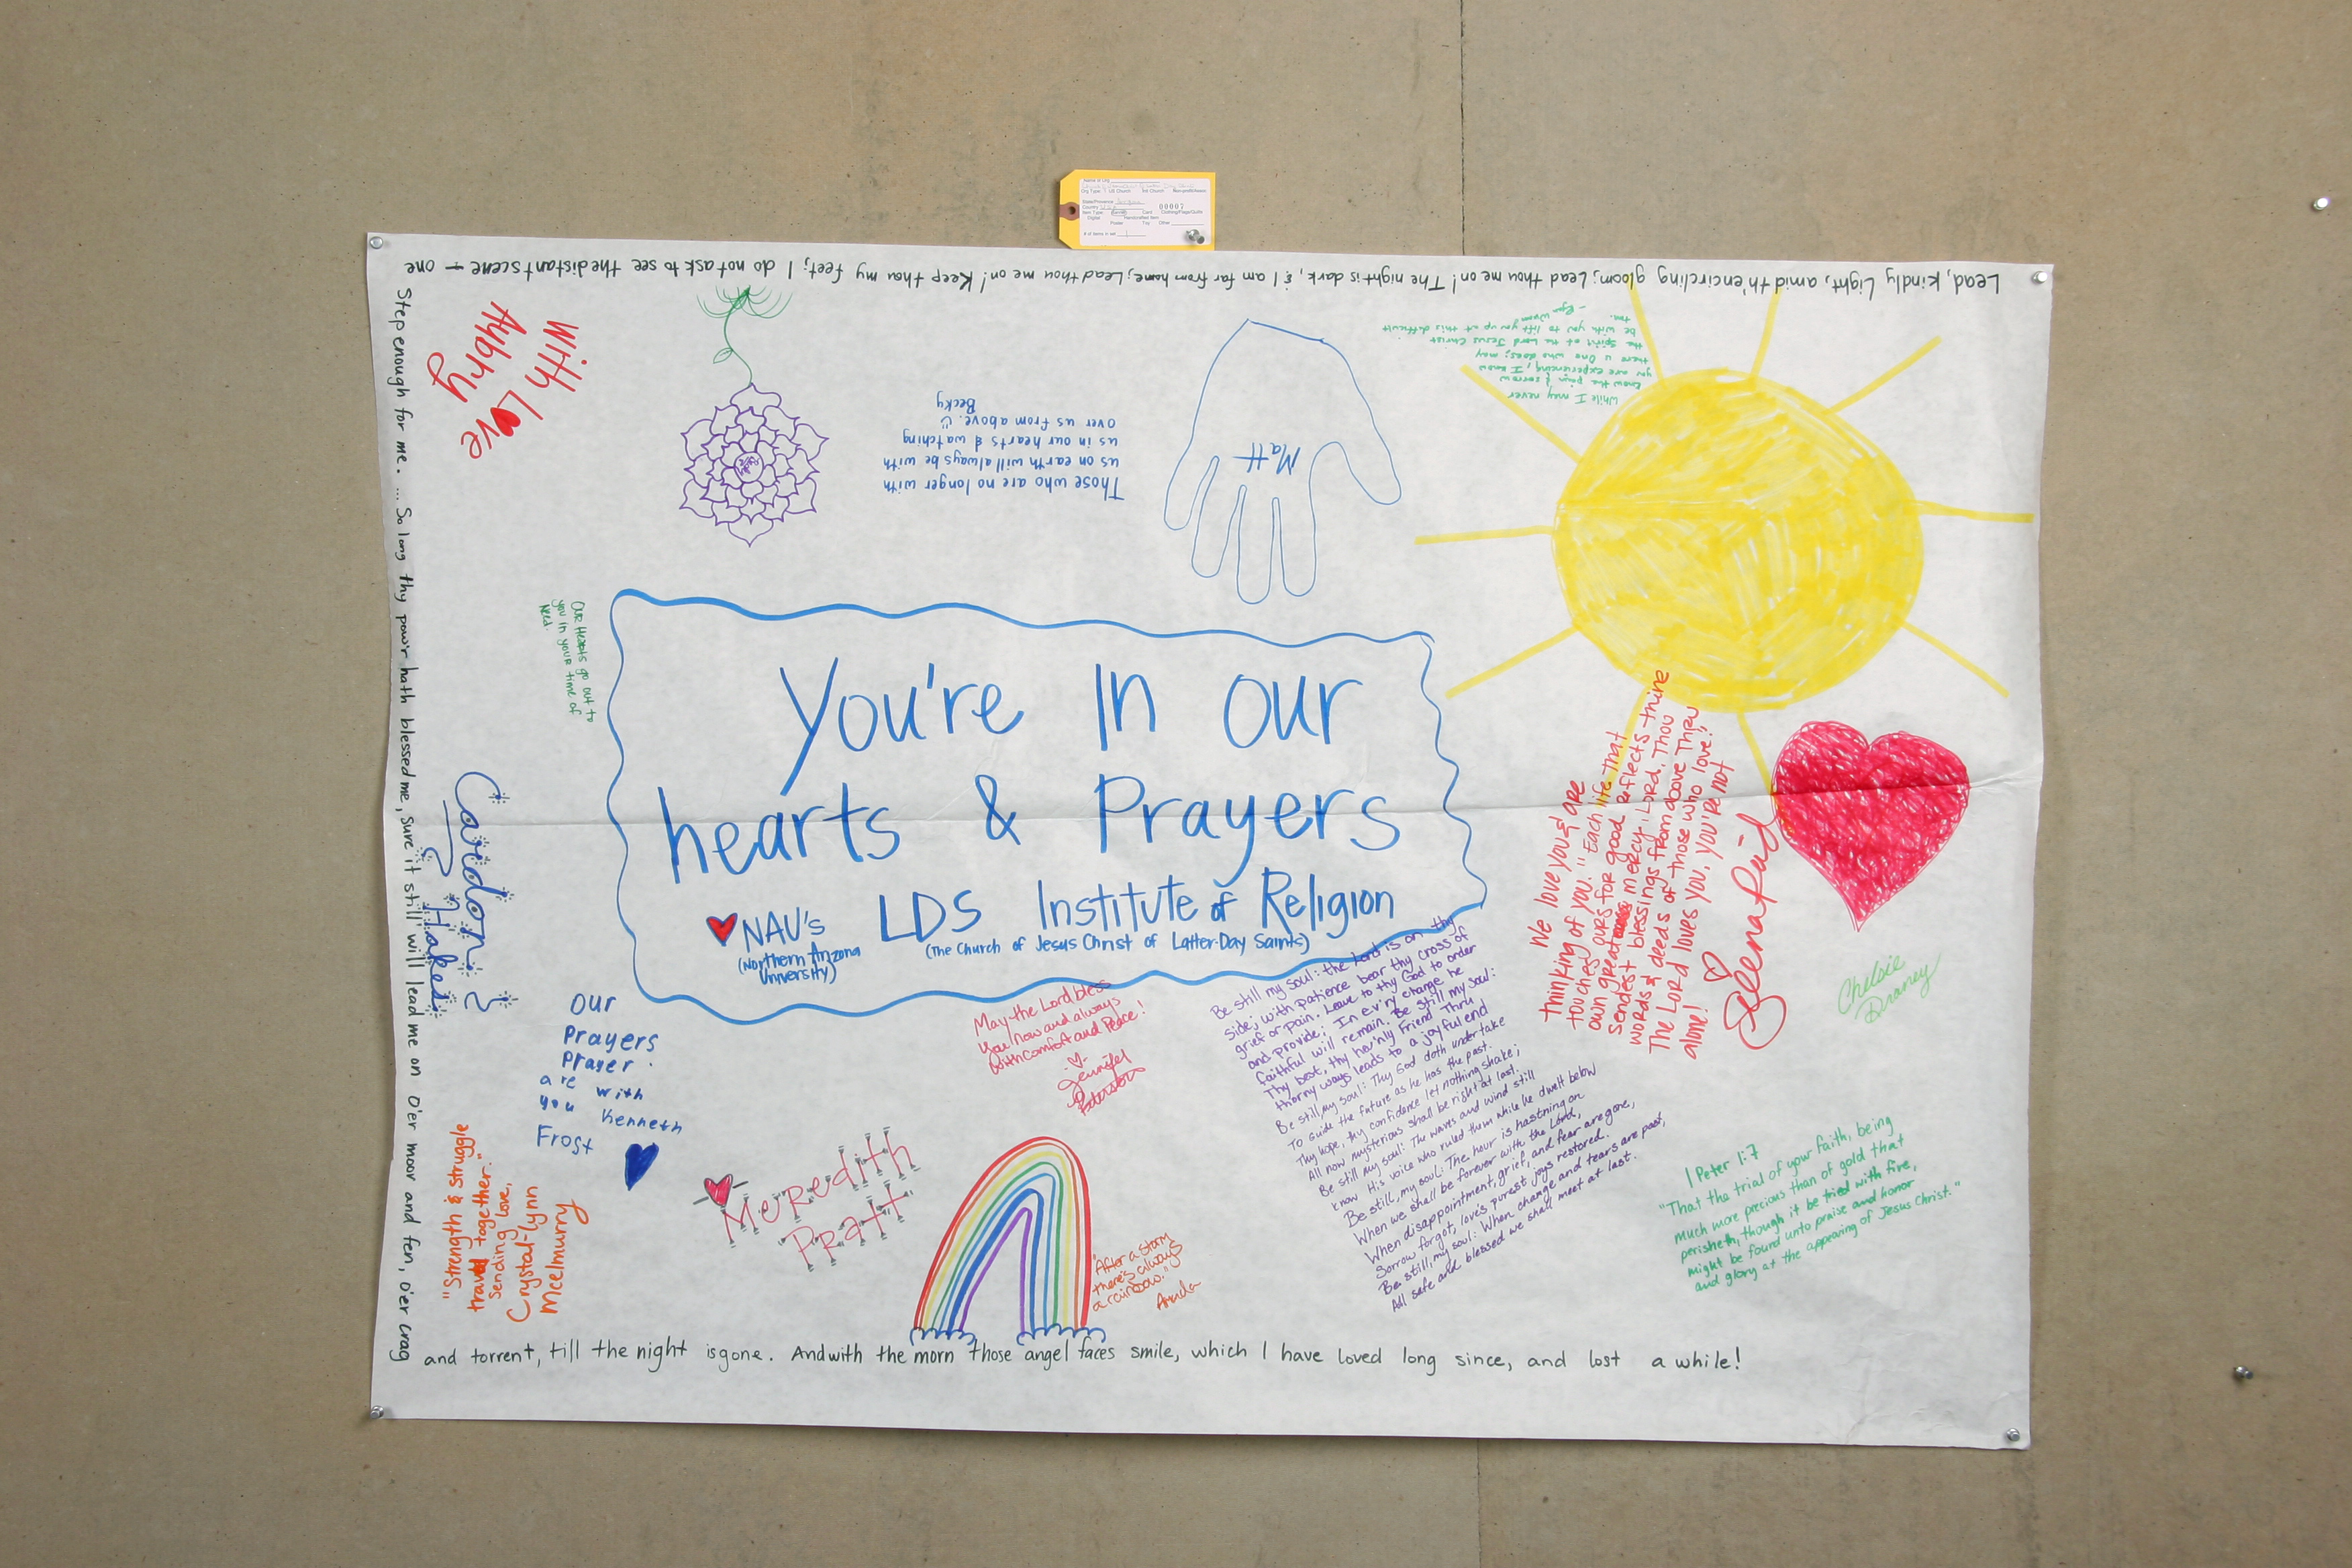 Name of Org
Org Type: US Church Int Church Non-profit/Assoc.
State/Province
Country USA 00007
Item Type: Banner Card Clothing/Flags/Quilts
Digital Handcrafted Item
Poster Toy Other
# of items in set 1
Lead, Kindly Light, amid th'encircling gloom; Lead thou me on! The night is dark, & I am far from home; Lead thou me on! Keep thou my feet; I do not ask to see the distant scene - one
Step enough for me. ... So long thy pow'r hath blessed me, sure it still will lead me on O'er moor and fen, o'er crag
and torrent, till the night is gone. And with the morn those angel faces smile, which I have loved long since, and lost a while!
With Love
Aubrey
Those who are no longer with
us on earth will always be with
us in our hearts & watching
over us from above. ☺
Becky
Matt
While I may never
know the pain & sorrow
you are experiencing, I know
there is One who does; may
the Spirit of the Lord Jesus Christ
be with you to lift you up at this difficult
time.
Our Hearts go out to
you in your time of
Need.
You're In our
hearts & Prayers
NAU's LDS Institute of Religion
(Northern Arizona
University)
(The Church of Jesus Christ of Latter-Day Saints)
We love you & are
thinking of you. "Each life that
touches ours for good reflects thine
own great mercy, Lord. Thou
sendest blessings from above Thru
words & deeds of those who love."
The Lord loves you, you're not
alone!
Cardon
Hakes
Chelsie
Draney
Our
Prayers
Prayer
are with
you Kenneth
Frost
May the Lord bless
you now and always
with comfort and Peace!
Jennifer
Be still my soul: the Lord is on thy
side; with patience bear thy cross of
grief or pain. Leave to thy God to order
and provide; In ev'ry change he
faithful will remain. Be still my soul:
Thy best, thy heav'nly Friend Thru
thorny ways leads to a joyful end
Be still, my soul: Thy God doth undertake
To guide the future as he has the past.
Thy hope, thy confidence let nothing shake;
All now mysterious shall be bright at last.
Be still my soul: The waves and wind still
know His voice who ruled them while he dwelt below
Be still, my soul: The hour is hastning on
When we shall be forever with the Lord,
When disappointment, grief, and fear are gone,
Sorrow forgot, love's purest joys restored.
Be still, my soul: When change and tears are past,
All safe and blessed we shall meet at last.
"Strength & struggle
travel together."
Sending love,
Crystal-lynn
Mcelmurry
Meredith
Pratt
"After a storm
there's always
a rainbow."
1 Peter 1:7
"That the trial of your faith, being
much more precious than of gold that
perisheth, though it be tried with fire,
might be found unto praise and honor
and glory at the appearing of Jesus Christ."